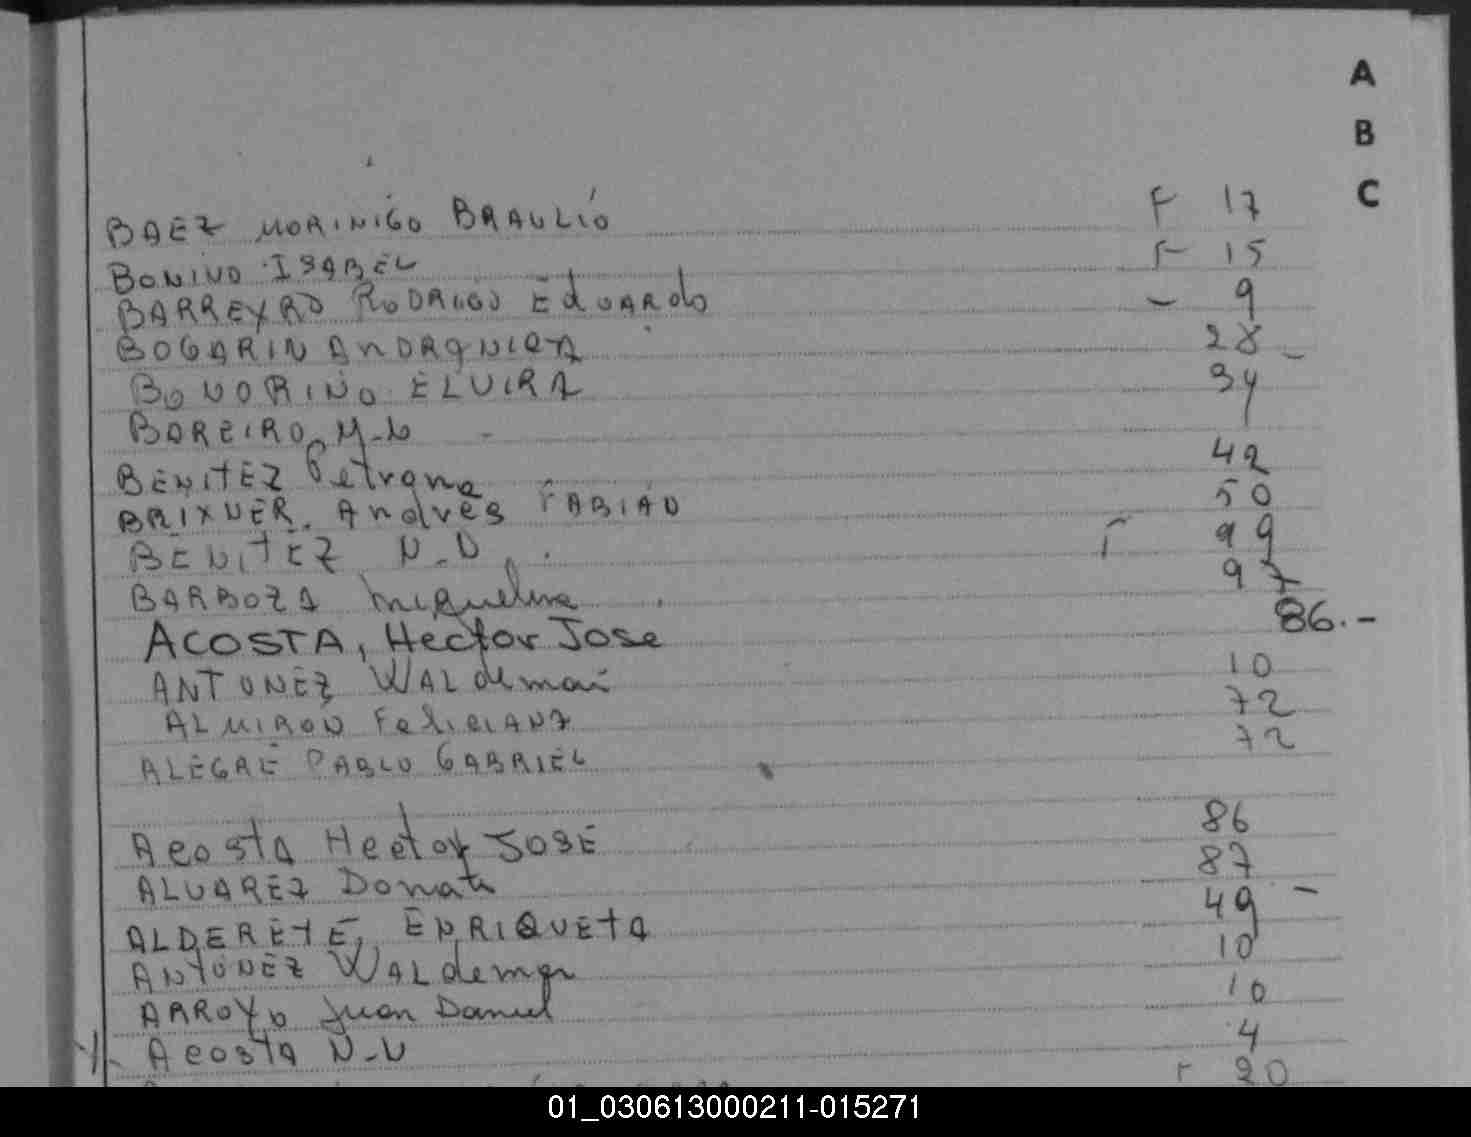 A
B
C
BAEZ MORINIGO BRAULIO F 17
BONINO ISABEL F 15
BARREYRO RODRIGO EdUARdo - 9
BOGARIN 28 -
BONORINO ELVIRA 34
BOREIRO
BENITEZ Petrona 42
BRIXNER. Andrés FABIAN 50
BENITEZ N.N 99
BARBOZA Miguelina 97
ACOSTA, Hector Jose 86.-
ANTUNEZ WALdemar 10
ALMIRON FeliciANA 72
ALEGRE PABLO GABRIEL 72
Acosta Hector JOSE 86
ALVAREZ Donata 87
ALDERETE, ENRIQUETA 49 -
ANTUNEZ WALdemar 10
ARROYO Juan Daniel 10
Acosta N.N 4
20
01_030613000211-015271